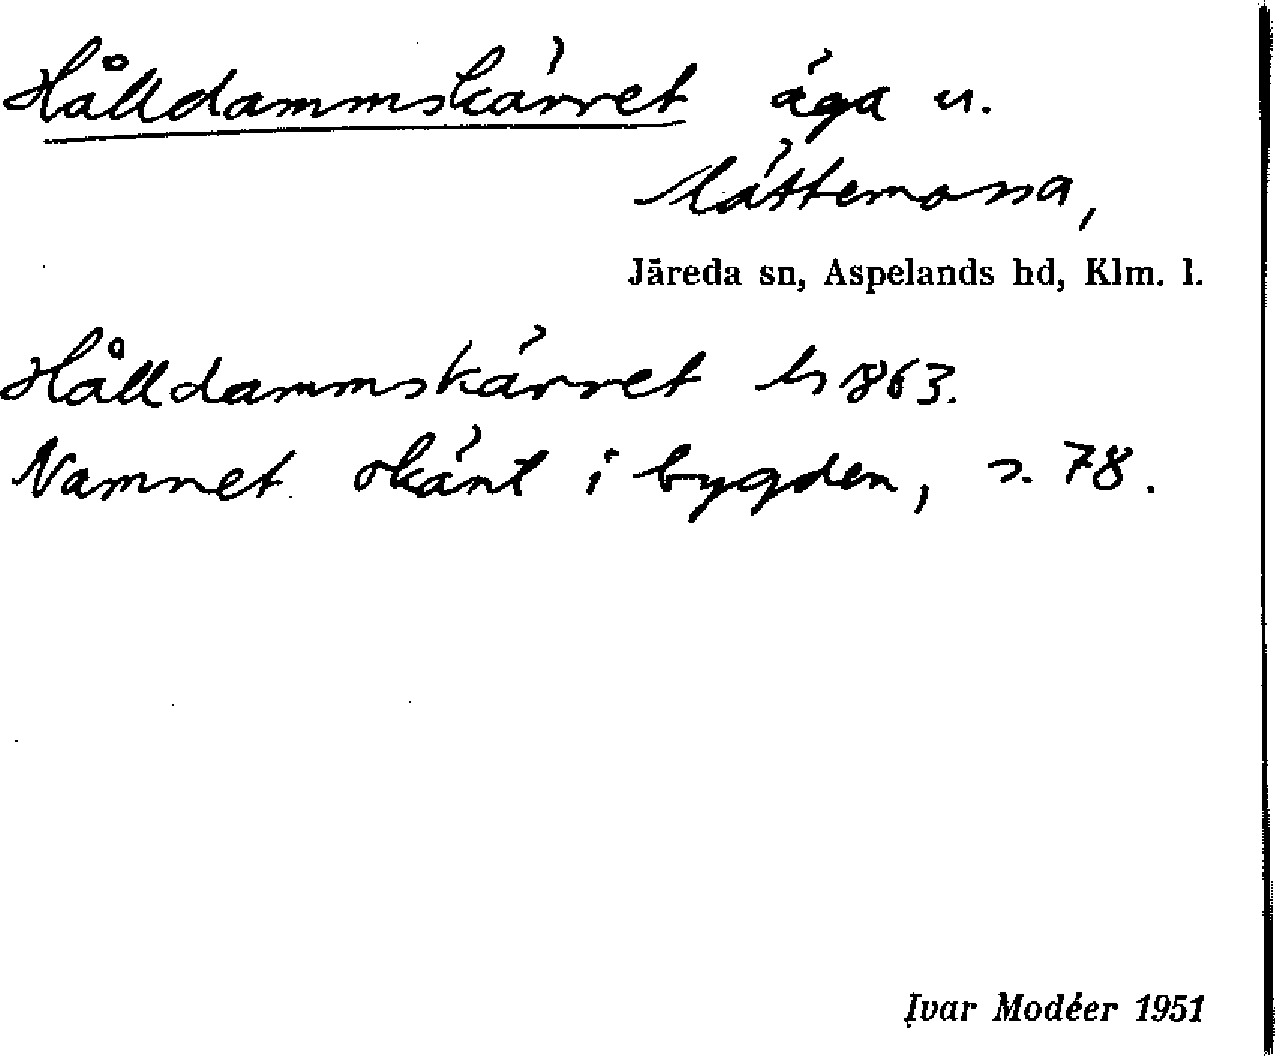 Hålldammskärret äga u.
Lättemossa,
Järeda sn, Aspelands hd, Klm. l.
Hålldammskärret ls 1863.
Namnet okänt i bygden, s. 78.
Ivar Modéer 1951